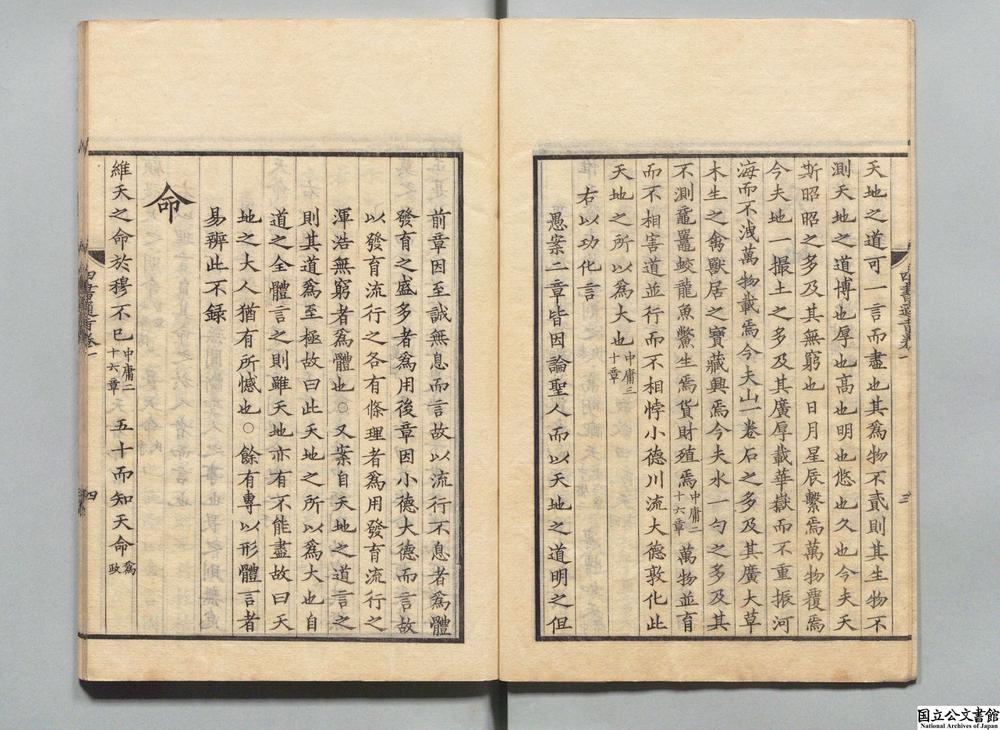 天地之道可一言而盡也其爲物不貳則其生物不
測天地之道博也厚也高也明也悠也久也今夫天
斯昭昭之多及其無窮也日月星辰繫焉萬物覆焉
今夫地一撮土之多及其廣厚載華嶽而不重振河
海而不洩萬物載焉今夫山一卷石之多及其廣大草
木生之禽獸居之寶藏興焉今夫水一勺之多及其
不測黿鼉蛟龍魚鱉生焉貨財殖焉中庸二十六章 萬物並育
而不相害道並行而不相悖小德川流大德敦化此
天地之所以爲大也中庸三十章
右以功化言
愚案二章皆因論聖人而以天地之道明之但
前章因至誠無息而言故以流行不息者爲體
發育之盛多者爲用後章因小德大德而言故
以發育流行之各有條理者爲用發育流行之
渾浩無窮者爲體也○又案自天地之道言之
則其道爲至極故曰此天地之所以爲大也自
道之全體言之則雖天地亦有不能盡故曰天
地之大人猶有所憾也○餘有專以形體言者
易辨此不録
命
維天之命於穆不已中庸二十六章 五十而知天命爲政
四書通旨卷一
三
四書通旨卷一
四
国立公文書館
National Archives of Japan